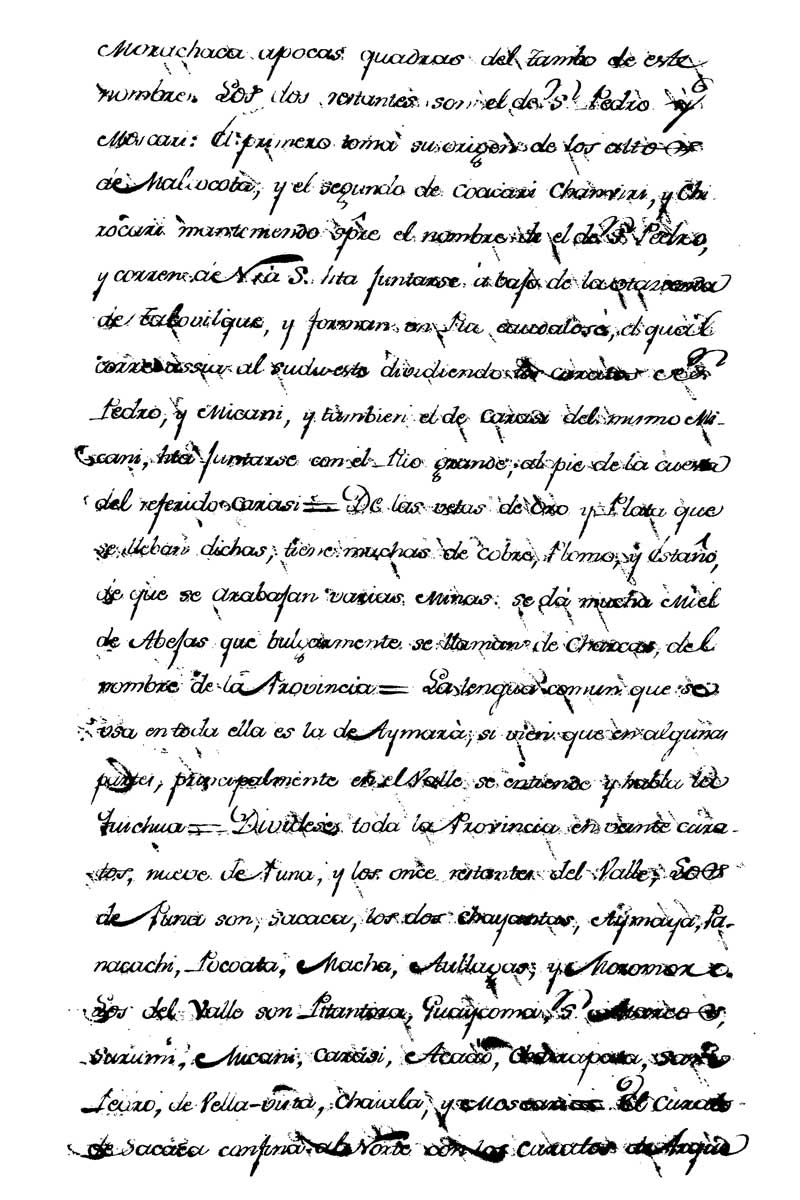 Morachaca apocas quadras del tambo de este
nombre. Los dos restantes son el de Sn. Pedro y
Moscari: El primero toma su origen de los altos
de Malcocota, y el segundo de Coacari Chamviri, y Chi
rocari manteniendo spre el nombre de el de Sn. Pedro,
y corren de Nrã S. hta juntarse á bajo de la estancia
de, y forman un Rio caudaloso, el qual
corre assia al sudueste dividiendo los curatos de Sn
Pedro, y Micani, y tambien el de Carasi del mismo Mi-
cani, hta juntarse con el Rio grande, al pie de la cuesta
del referido Carasi = De las vetas de oro y Plata que
se lleban dichas, tiene muchas de cobre, Plomo, y Estaño,
de que se trabajan varias Minas. se dá mucha Miel
de Abejas que bulgarmente se llaman de Charcas, del
nombre de la Provincia = La lengua comun que se
vsa en toda ella es la de Aymará, si vien que en algunas
partes, principalmente en el Valle se entiende y habla la
Quichua = Dividese toda la Provincia en veinte cura-
tos, nueve de Puna, y los once restantes del Valle, Los
de Puna son, Sacaca, los dos Chayantas, Aymaya, Pa-
nacachi, Pocoata, Macha, Aullagas, y Moromoro.
Los del Valle son Pitantora, Guaycoma, Sn. Marcos,
Surumi, Micani, Carasi, Acacio, San
Pedro, de Vella-vista, Chaiala, y Moscari. El Curato
de Sacaca confina al Norte con los Curatos de Arque